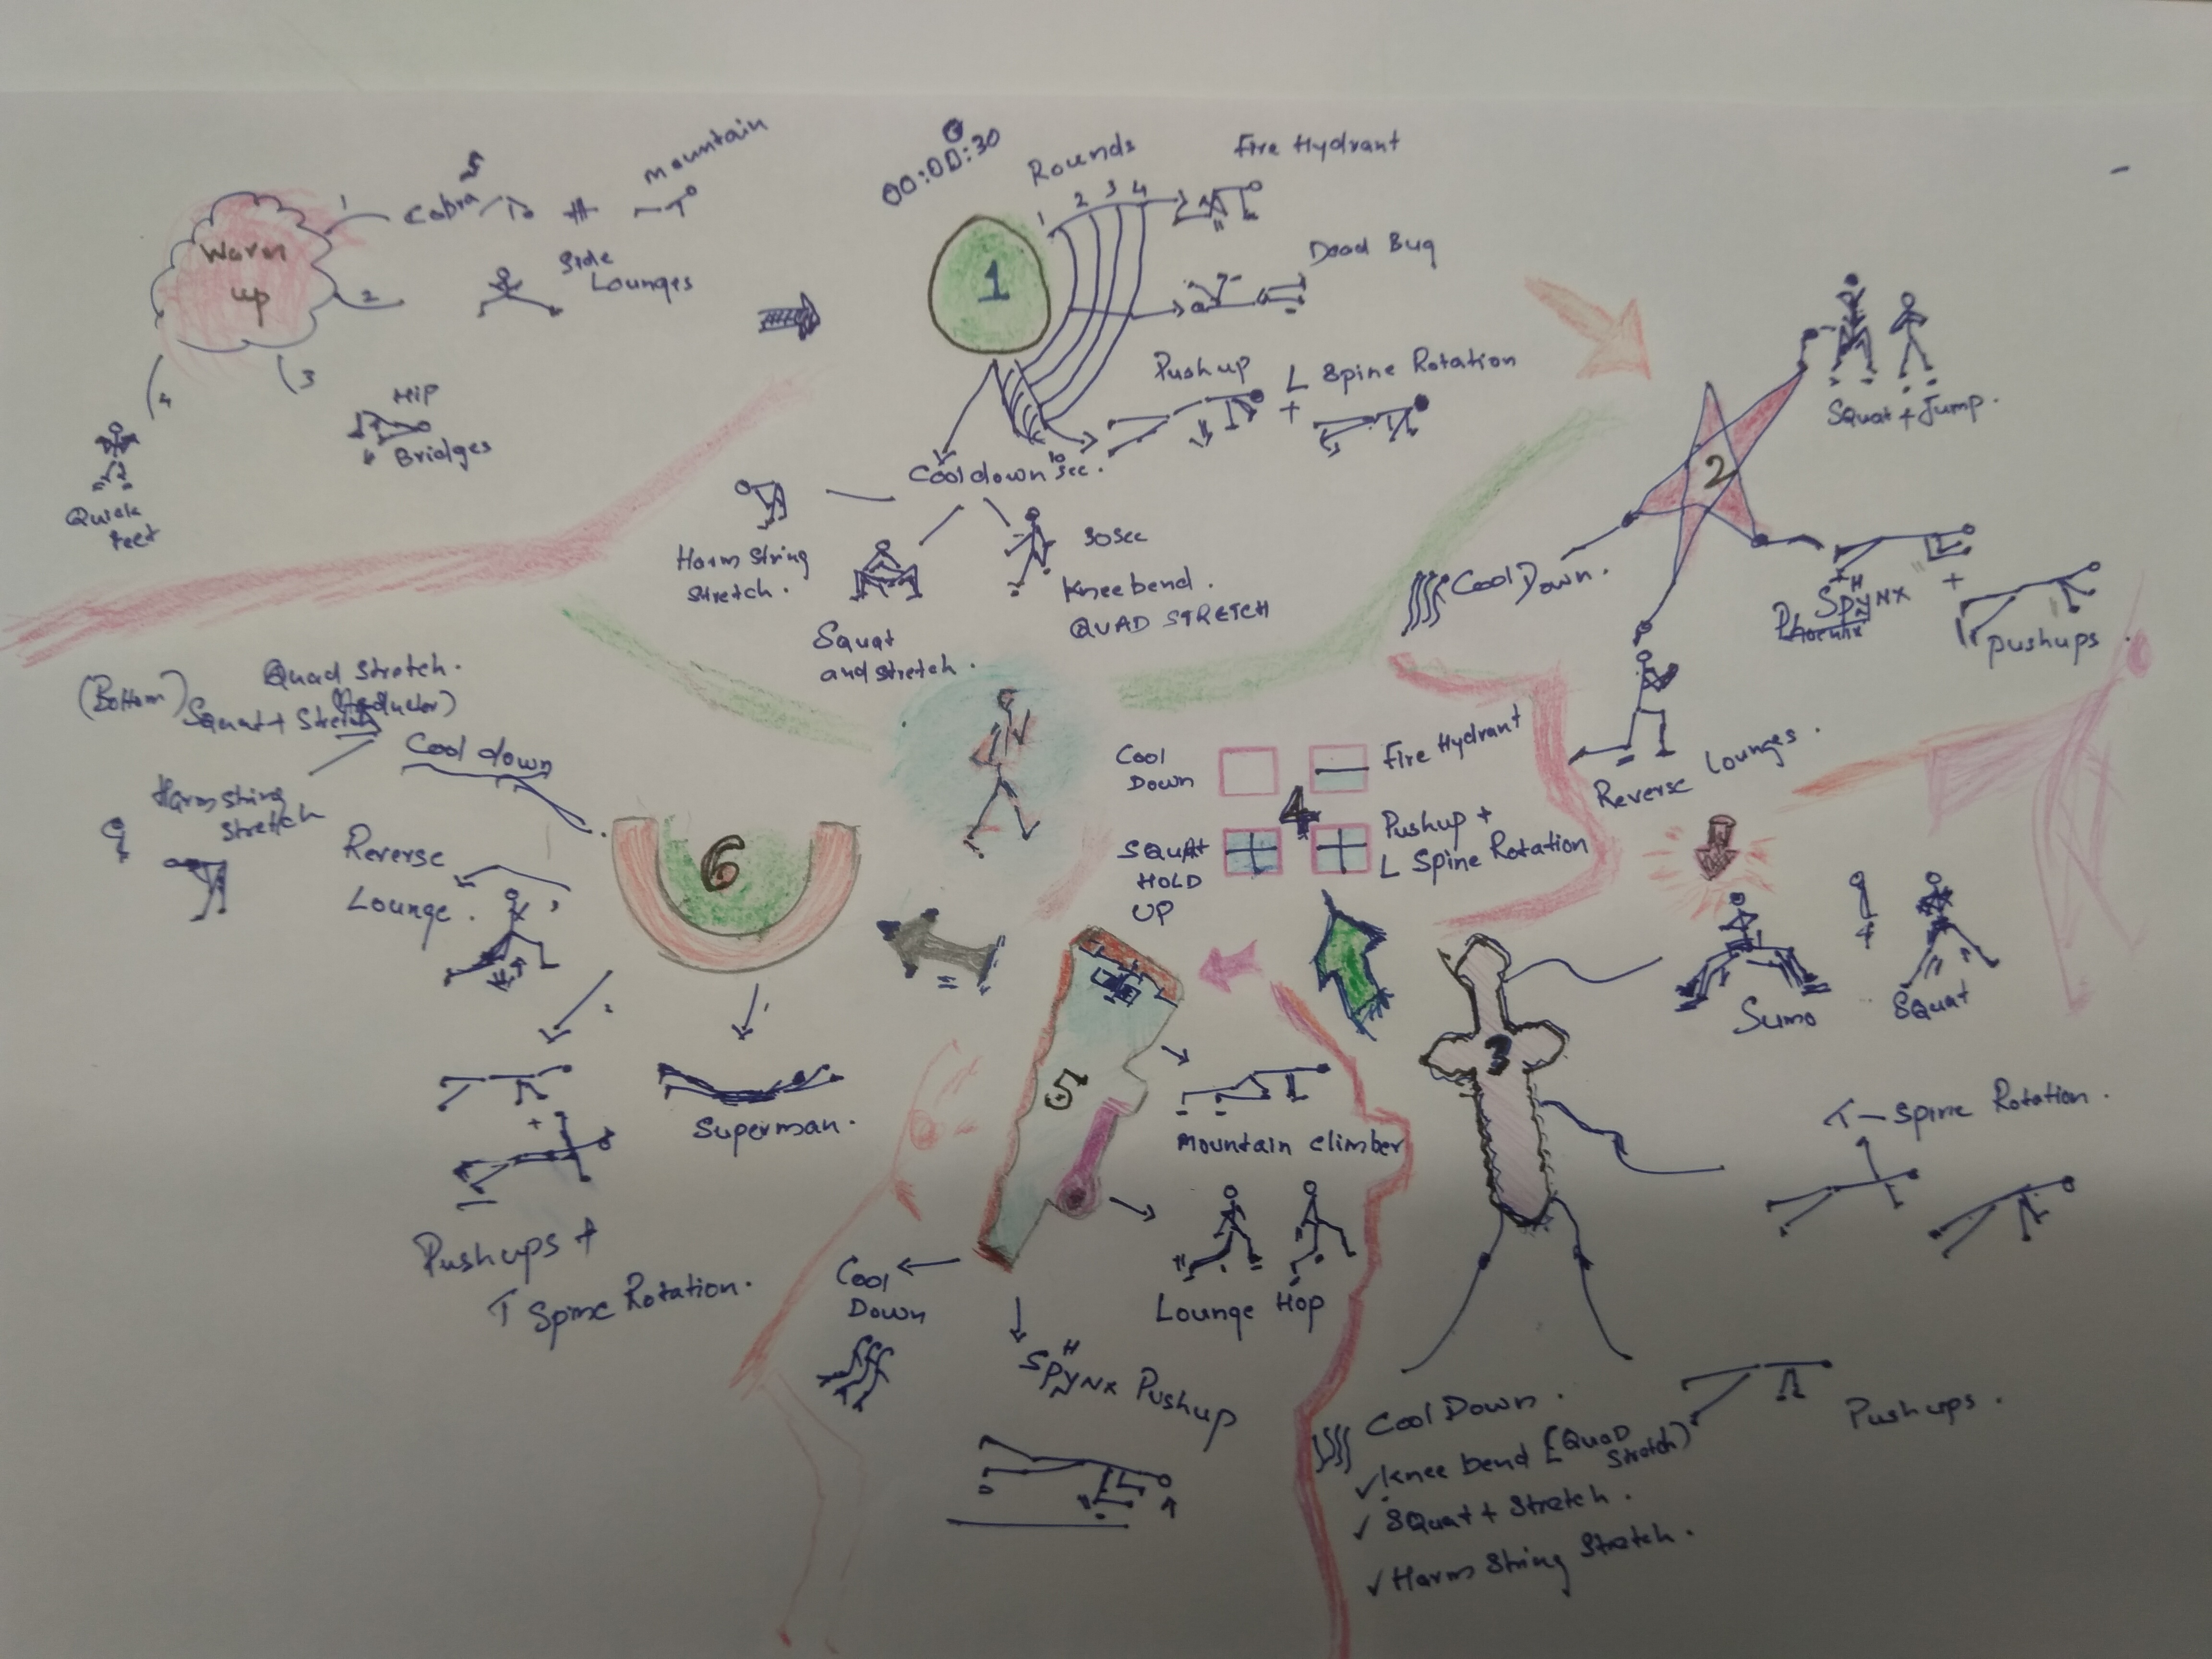 Warm
up
1
Cobra
Mountain
2
Side
Lounges
3
HiP
Bridges
4
Quick
feet
00:00:30
Rounds
1 2 3 4
1
Fire Hydrant
Dead Bug
Pushup
+
L Spine Rotation
Cooldown 10 sec.
Harm String
Stretch.
Squat
and stretch.
30sec
Kneebend.
QUAD STRETCH
2
Squat + Jump.
SpHyNX
+
pushups
Reverse Lounges.
Cool Down.
3
Sumo
+
Squat
T- Spine Rotation.
Pushups.
Cool Down.
✓ Knee bend [Quad
Stretch)
✓ Squat + Stretch.
✓ Harm String Stretch.
4
Cool
Down
Fire Hydrant
SQUAT
HOLD
UP
Pushup +
L Spine Rotation
5
Mountain climber
Lounge Hop
SPHYNX Pushup
Cool
Down
6
1
Superman.
2
+
Pushups +
T Spine Rotation.
3
Reverse
Lounge.
Cool down
Quad Stretch.
(Bottom) Squat + Stretch
Harm String
Stretch